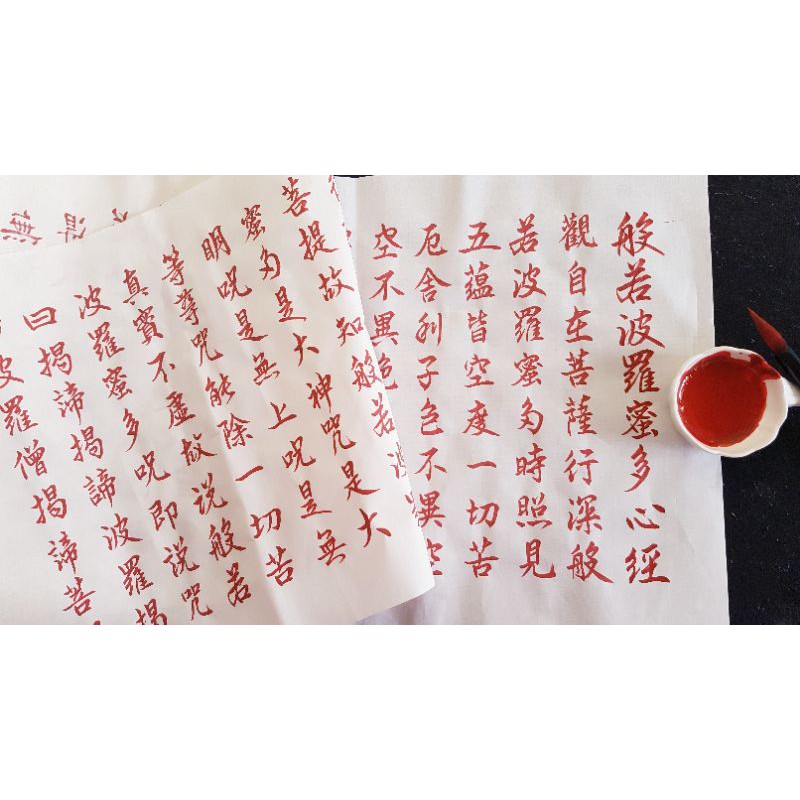 般若波羅蜜多心經
觀自在菩薩行深般
若波羅蜜多時照見
五蘊皆空度一切苦
厄舍利子色不異空
空不異色
菩提故知般若波
蜜多是大神咒是大
明呪是無上呪是無
等等咒能除一切苦
真實不虛故說般若
波羅蜜多呪即說咒
曰揭諦揭諦波羅揭
波羅僧揭諦菩